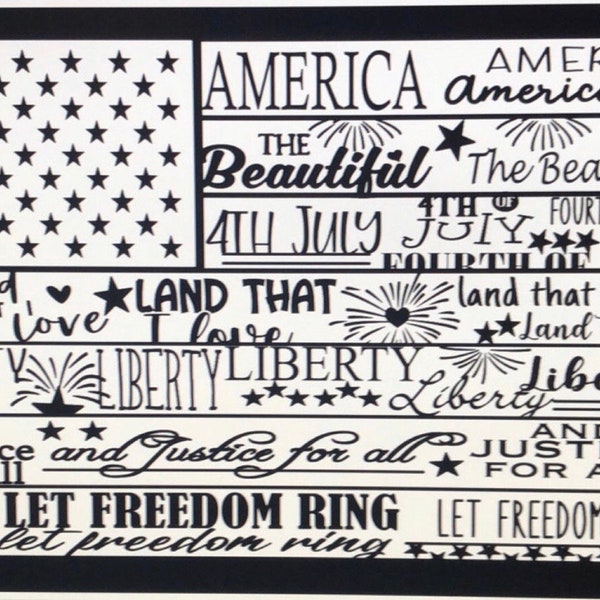 AMERICA AMER
America
THE
Beautiful The Bea
4TH JULY 4TH OF JULY FOURT
FOURTH OF
LAND THAT land that
Love I love Land
LIBERTY LIBERTY Liberty Libe
and Justice for all AND
JUSTI
FOR A
LET FREEDOM RING LET FREEDOM
let freedom ring